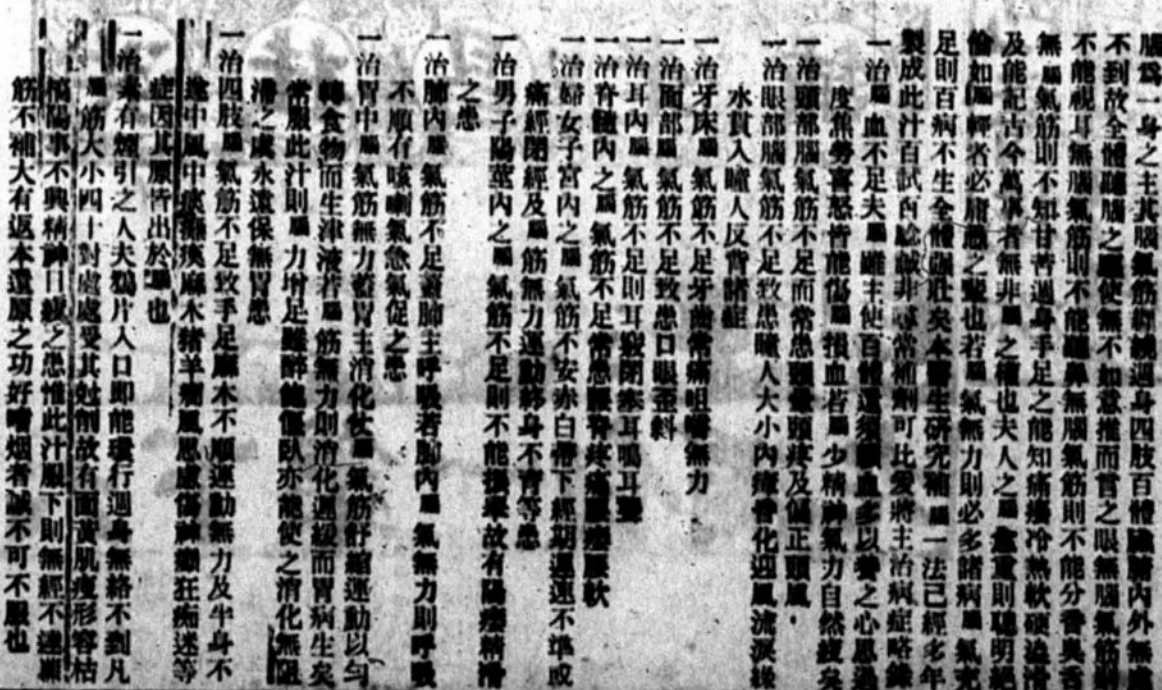 腦爲一身之主其腦氣筋纏繞週身四肢百體臟腑內外無
不到故全體聽腦之驅使無不如意推而言之眼無腦氣筋則
不能視耳無腦氣筋則不能聽鼻無腦氣筋則不能分香臭舌
無腦氣筋則不知甘苦週身手足之能知痛癢冷熱軟硬澁滑
及能記古今萬事者無非腦之補也夫人之腦愈重則聰明絕
倫如腦輕者必庸愚之輩也若腦氣無力則必多諸病腦氣充
足則百病不生全體强壯矣本醫生研究補腦一法己經多年
製成此汁百試百騐誠非尋常補劑可比爰將主治病症略錄
一治腦血不足夫腦雖主使百體還須賴血多以養之心思過
度焦勞喜怒皆能傷腦損血若腦少精神氣力自然緩矣
一治頭部腦氣筋不足而常患頭暈頭疼及偏正頭風
一治眼部腦氣筋不足致患瞳人大小內瘴昏化迎風流淚後
水貫入瞳人反背諸症
一治牙床腦氣筋不足牙齒常痛咀嚼無力
一治面部腦氣筋不足致患口眼歪斜
一治耳內腦氣筋不足則耳竅閉塞耳鳴耳聾
一治脊髓內之腦氣筋不足常患腰脊疼痛腿軟
一治婦女子宮內之腦氣筋不安赤白帶下經期遲速不準或
痛經閉經及腦筋無力運動終身不育等患
一治男子陽莖內之腦氣筋不足則不能舉故有陽痿精滑
之患
一治肺內腦氣筋不足蓋肺主呼吸若肺內腦氣無力則呼吸
不順有咳喇氣急氣促之患
一治胃中腦氣筋無力蓋胃主消化仗腦氣筋舒縮運動以勻
轉食物而生津液若腦筋無力則消化遲緩而胃病生矣
常服此汁則腦力增足雖醉飽偃臥亦能使之消化無阻
滯之處永遠保無胃患
一治四肢腦氣筋不足致手足麻木不順運動無力及半身不
遂中風中痰癱瘓麻木猪羊癎風思慮傷神癲狂痴迷等
症因其原皆出於腦也
一治素有煙引之人夫鴉片入口即能環行週身無絡不到凡
腦筋大小四十對處處受其尅削故有面黃肌瘦形容枯
槁陽事不興精神日緩之患惟此汁服下則無經不達無
筋不補大有返本還原之功好嗜烟者誠不可不服也